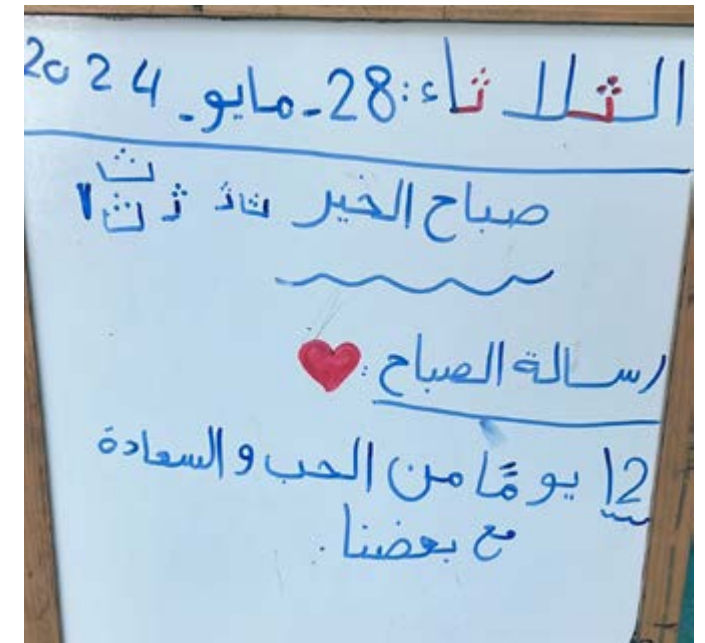 الثلاثاء: 28-مايو-2024
صباح الخير
رسالة الصباح:
12 يومًا من الحب والسعادة
مع بعضنا.